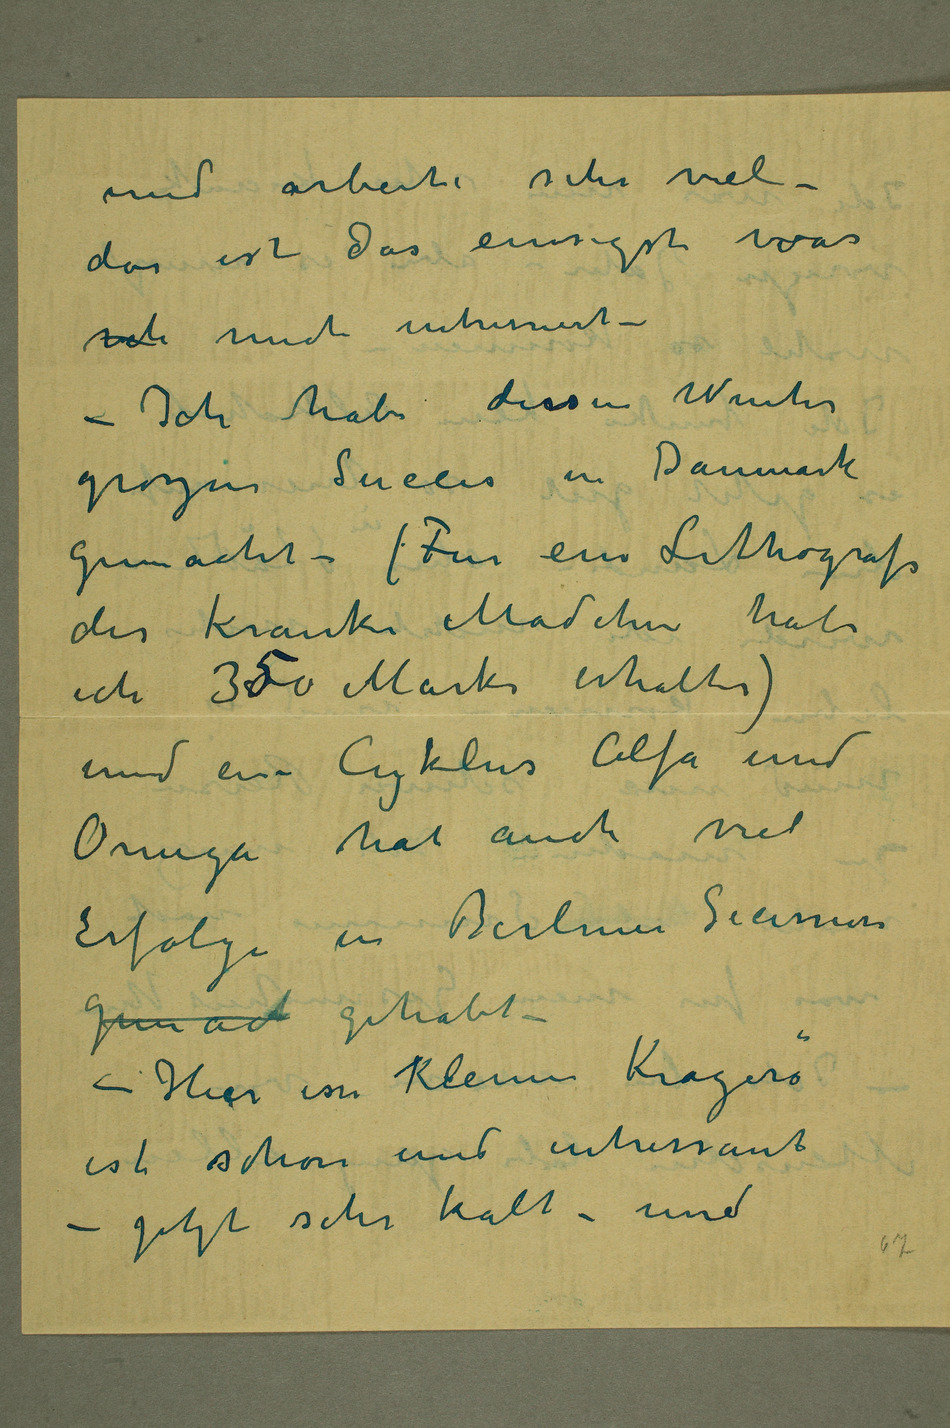 und arbeite sehr viel –
das ist das einsigste was
ich mich intressiert –
– Ich habe diesen Winter
grozen Succes in Danmark
gemacht – (Für ein Lithografi
des kranke Mädchen habe
ich 350 Marks erhalten)
und ein Cyklus Alfa und
Omega hat auch viel
Erfolge in Berliner Secession
gemacht gehabt –
– Hier im Kleinen Kragerö
ist schön und intressant
– jetzt sehr kalt – und
67